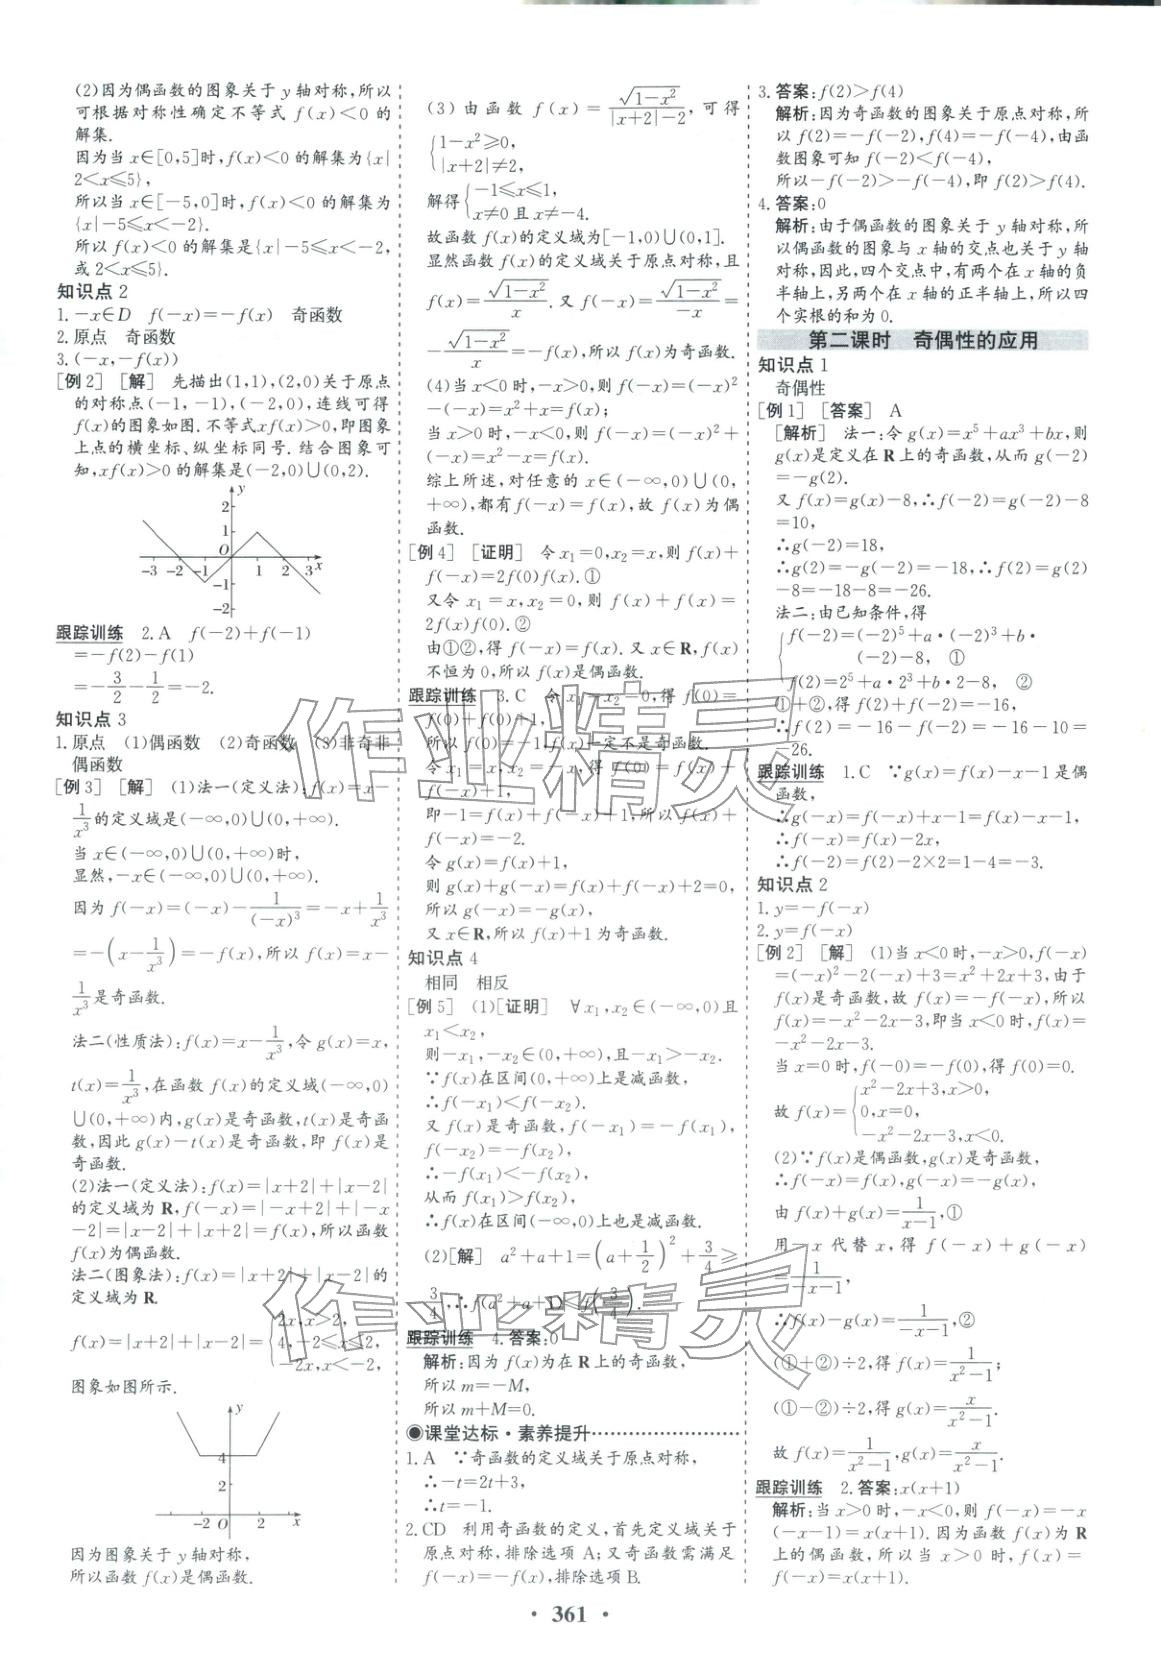 (2)因为偶函数的图象关于y轴对称,所以
可根据对称性确定不等式 f(x)<0的
解集.
因为当x∈[0,5]时,f(x)<0的解集为{x|
2<x≤5},
所以当x∈[-5,0]时,f(x)<0的解集为
{x|-5≤x<-2}.
所以f(x)<0的解集是{x|-5≤x<-2,
或2<x≤5}.
知识点2
1.-x∈D f(-x)=-f(x) 奇函数
2.原点 奇函数
3.(-x,-f(x))
[例2] [解] 先描出(1,1),(2,0)关于原点
的对称点(-1,-1),(-2,0),连线可得
f(x)的图象如图.不等式xf(x)>0,即图象
上点的横坐标、纵坐标同号.结合图象可
知,xf(x)>0的解集是(-2,0)∪(0,2).
y
2
1
O
-3 -2 -1 1 2 3 x
-1
-2
跟踪训练 2.A f(-2)+f(-1)
=-f(2)-f(1)
=-3/2-1/2=-2.
知识点3
1.原点 (1)偶函数 (2)奇函数 (3)非奇非
偶函数
[例3] [解] (1)法一(定义法):f(x)=x-
1/x³的定义域是(-∞,0)∪(0,+∞).
当x∈(-∞,0)∪(0,+∞)时,
显然,-x∈(-∞,0)∪(0,+∞).
因为f(-x)=(-x)-1/(-x)³=-x+1/x³
=-(x-1/x³)=-f(x),所以f(x)=x-
1/x³是奇函数.
法二(性质法):f(x)=x-1/x³,令g(x)=x,
t(x)=1/x³,在函数f(x)的定义域(-∞,0)
∪(0,+∞)内,g(x)是奇函数,t(x)是奇函
数,因此g(x)-t(x)是奇函数,即f(x)是
奇函数.
(2)法一(定义法):f(x)=|x+2|+|x-2|
的定义域为R,f(-x)=|-x+2|+|-x
-2|=|x-2|+|x+2|=f(x),所以函数
f(x)为偶函数.
法二(图象法):f(x)=|x+2|+|x-2|的
定义域为R.
f(x)=|x+2|+|x-2|={2x,x>2,
4,-2≤x≤2,
-2x,x<-2,
图象如图所示.
y
4
2
-2 O 2 x
因为图象关于y轴对称,
所以函数f(x)是偶函数.
(3)由函数 f(x)=√(1-x²)/(|x+2|-2),可得
{1-x²≥0,
|x+2|≠2,
解得{-1≤x≤1,
x≠0且x≠-4.
故函数f(x)的定义域为[-1,0)∪(0,1].
显然函数f(x)的定义域关于原点对称,且
f(x)=√(1-x²)/x.又f(-x)=√(1-x²)/(-x)=
-√(1-x²)/x=-f(x),所以f(x)为奇函数.
(4)当x<0时,-x>0,则f(-x)=(-x)²
-(-x)=x²+x=f(x);
当x>0时,-x<0,则f(-x)=(-x)²+
(-x)=x²-x=f(x).
综上所述,对任意的x∈(-∞,0)∪(0,
+∞),都有f(-x)=f(x),故f(x)为偶
函数.
[例4] [证明] 令x₁=0,x₂=x,则f(x)+
f(-x)=2f(0)f(x).①
又令x₁=x,x₂=0,则f(x)+f(x)=
2f(x)f(0).②
由①②,得f(-x)=f(x).又x∈R,f(x)
不恒为0,所以f(x)是偶函数.
跟踪训练 3.C 令x₁=x₂=0,得f(0)=
f(0)+f(0)+1,
所以f(0)=-1,f(x)一定不是奇函数.
令x₁=x,x₂=-x,得f(0)=f(x)+
f(-x)+1,
即-1=f(x)+f(-x)+1,所以f(x)+
f(-x)=-2.
令g(x)=f(x)+1,
则g(x)+g(-x)=f(x)+f(-x)+2=0,
所以g(-x)=-g(x),
又x∈R,所以f(x)+1为奇函数.
知识点4
相同 相反
[例5] (1)[证明] ∀x₁,x₂∈(-∞,0)且
x₁<x₂,
则-x₁,-x₂∈(0,+∞),且-x₁>-x₂.
∵f(x)在区间(0,+∞)上是减函数,
∴f(-x₁)<f(-x₂).
又f(x)是奇函数,f(-x₁)=-f(x₁),
f(-x₂)=-f(x₂),
∴-f(x₁)<-f(x₂),
从而f(x₁)>f(x₂),
∴f(x)在区间(-∞,0)上也是减函数.
(2)[解] a²+a+1=(a+1/2)²+3/4≥
3/4,∴f(a²+a+1)≤f(3/4).
跟踪训练 4.答案:0
解析:因为f(x)为在R上的奇函数,
所以m=-M,
所以m+M=0.
◉课堂达标·素养提升
1.A ∵奇函数的定义域关于原点对称,
∴-t=2t+3,
∴t=-1.
2.CD 利用奇函数的定义,首先定义域关于
原点对称,排除选项A;又奇函数需满足
f(-x)=-f(x),排除选项B.
3.答案:f(2)>f(4)
解析:因为奇函数的图象关于原点对称,所
以f(2)=-f(-2),f(4)=-f(-4),由函
数图象可知f(-2)<f(-4),
所以-f(-2)>-f(-4),即f(2)>f(4).
4.答案:0
解析:由于偶函数的图象关于y轴对称,所
以偶函数的图象与x轴的交点也关于y轴
对称,因此,四个交点中,有两个在x轴的负
半轴上,另两个在x轴的正半轴上,所以四
个实根的和为0.
第二课时 奇偶性的应用
知识点1
奇偶性
[例1] [答案] A
[解析] 法一:令g(x)=x⁵+ax³+bx,则
g(x)是定义在R上的奇函数,从而g(-2)
=-g(2).
又f(x)=g(x)-8,∴f(-2)=g(-2)-8
=10,
∴g(-2)=18,
∴g(2)=-g(-2)=-18,∴f(2)=g(2)
-8=-18-8=-26.
法二:由已知条件,得
{f(-2)=(-2)⁵+a·(-2)³+b·
(-2)-8, ①
f(2)=2⁵+a·2³+b·2-8, ②
①+②,得f(2)+f(-2)=-16,
∴f(2)=-16-f(-2)=-16-10=
-26.
跟踪训练 1.C ∵g(x)=f(x)-x-1是偶
函数,
∴g(-x)=f(-x)+x-1=f(x)-x-1,
∴f(-x)=f(x)-2x,
∴f(-2)=f(2)-2×2=1-4=-3.
知识点2
1.y=-f(-x)
2.y=f(-x)
[例2] [解] (1)当x<0时,-x>0,f(-x)
=(-x)²-2(-x)+3=x²+2x+3,由于
f(x)是奇函数,故f(x)=-f(-x),所以
f(x)=-x²-2x-3,即当x<0时,f(x)=
-x²-2x-3.
当x=0时,f(-0)=-f(0),得f(0)=0.
故f(x)={x²-2x+3,x>0,
0,x=0,
-x²-2x-3,x<0.
(2)∵f(x)是偶函数,g(x)是奇函数,
∴f(-x)=f(x),g(-x)=-g(x),
由f(x)+g(x)=1/(x-1),①
用-x代替x,得f(-x)+g(-x)
=1/(-x-1),
∴f(x)-g(x)=1/(-x-1),②
(①+②)÷2,得f(x)=1/(x²-1);
(①-②)÷2,得g(x)=x/(x²-1).
故f(x)=1/(x²-1),g(x)=x/(x²-1).
跟踪训练 2.答案:x(x+1)
解析:当x>0时,-x<0,则f(-x)=-x
(-x-1)=x(x+1).因为函数f(x)为R
上的偶函数,所以当x>0时,f(x)=
f(-x)=x(x+1).
• 361 •
作业精灵
作业精灵